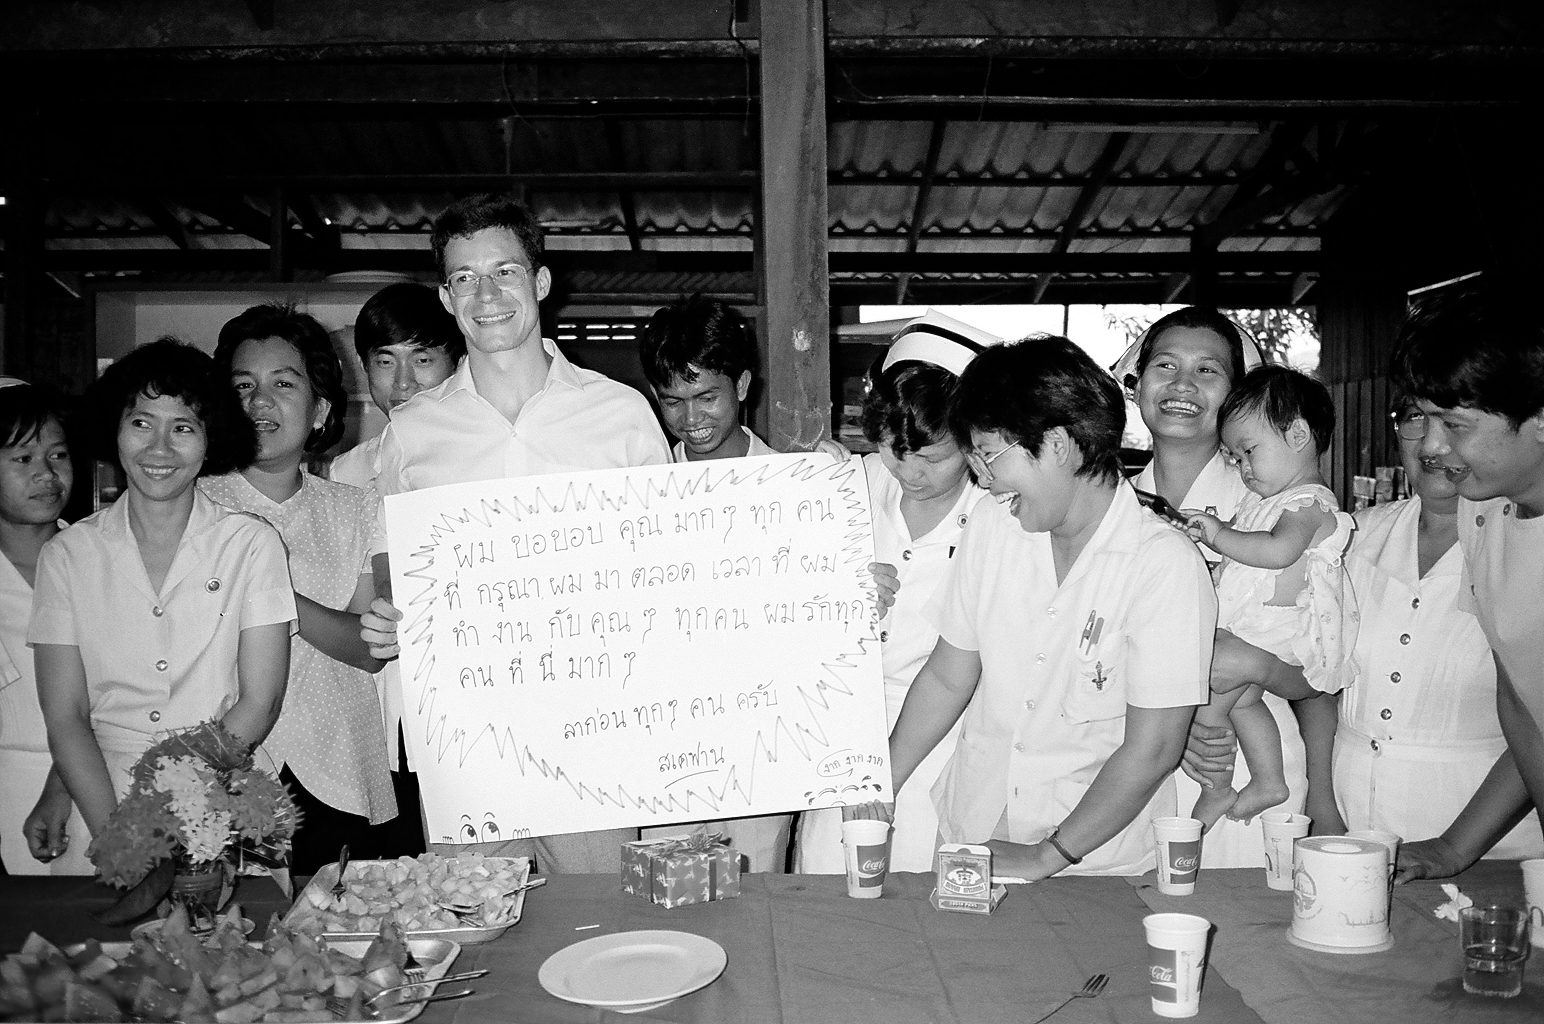 ผม ขอขอบ คุณ มาก ๆ ทุก คน
ที่ กรุณา ผม มา ตลอด เวลา ที่ ผม
ทำ งาน กับ คุณ ๆ ทุกคน ผมรักทุก
คน ที่ นี่ มาก ๆ
ลาก่อน ทุกๆ คน ครับ
สเตฟาน
Coca-Cola
Coca-Cola
Coca-Cola